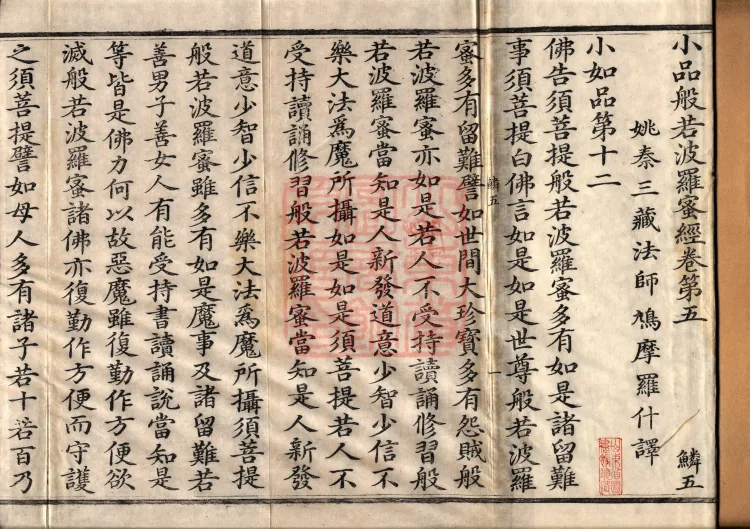 小品般若波羅蜜經卷第五 鱗五
姚秦三藏法師鳩摩羅什譯
小如品第十二
佛告須菩提般若波羅蜜多有如是諸留難
事須菩提白佛言如是如是世尊般若波羅
蜜多有留難譬如世間大珍寶多有怨賊般
鱗五 一
若波羅蜜亦如是若人不受持讀誦修習般
若波羅蜜當知是人新發道意少智少信不
樂大法為魔所攝如是如是須菩提若人不
受持讀誦修習般若波羅蜜當知是人新發
道意少智少信不樂大法為魔所攝須菩提
般若波羅蜜雖多有如是魔事及諸留難若
善男子善女人有能受持書讀誦說當知是
等皆是佛力何以故惡魔雖復勤作方便欲
滅般若波羅蜜諸佛亦復勤作方便而守護
之須菩提譬如母人多有諸子若十若百乃